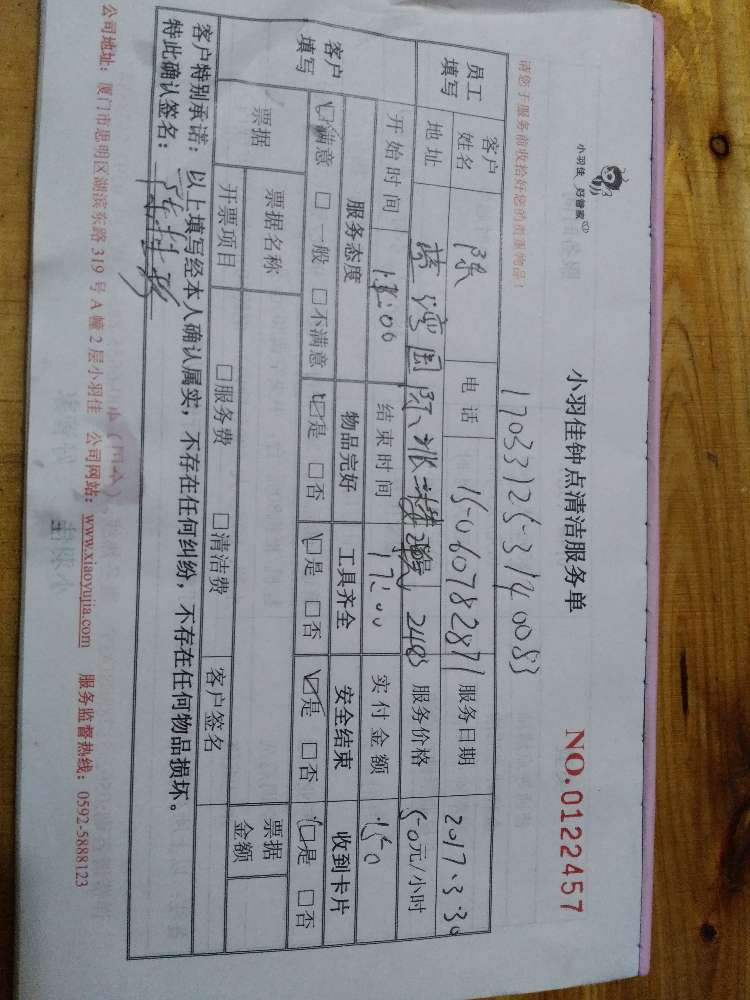 小羽佳 好管家
小羽佳钟点清洁服务单
NO.0122457
17033125-3140083
请您于服务前收拾好您的贵重物品!
员工填写 客户姓名 陈 电话 15060782871 服务日期 2017.3.30
地址 湾国际 2403 服务价格 50元/小时
客户填写 开始时间 :00 结束时间 17:00 实付金额 150
服务态度 物品完好 工具齐全 安全结束 收到卡片
☑满意 □一般 □不满意 ☑是 □否 ☑是 □否 ☑是 □否 ☑是 □否
票据 票据名称 票据金额
开票项目 □服务费 □清洁费 客户签名
客户特别承诺:以上填写经本人确认属实,不存在任何纠纷,不存在任何物品损坏。
特此确认签名:
公司地址:厦门市思明区湖滨东路319号A幢2层小羽佳 公司网站:www.xiaoyujia.com 服务监督热线:0592-5888123